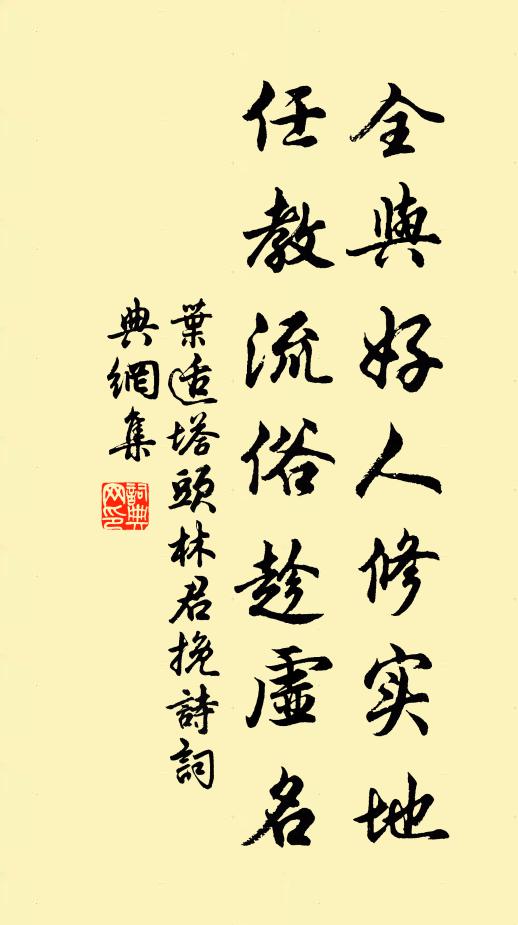 全與好人修实地
任教流俗趁虛名
葉适塔頭林君挽詩詞
典網集
詞典網印